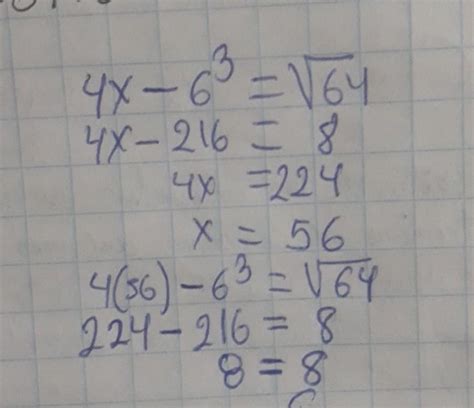 4x - 6³ = √64
4x - 216 = 8
4x = 224
x = 56
4(56) - 6³ = √64
224 - 216 = 8
8 = 8